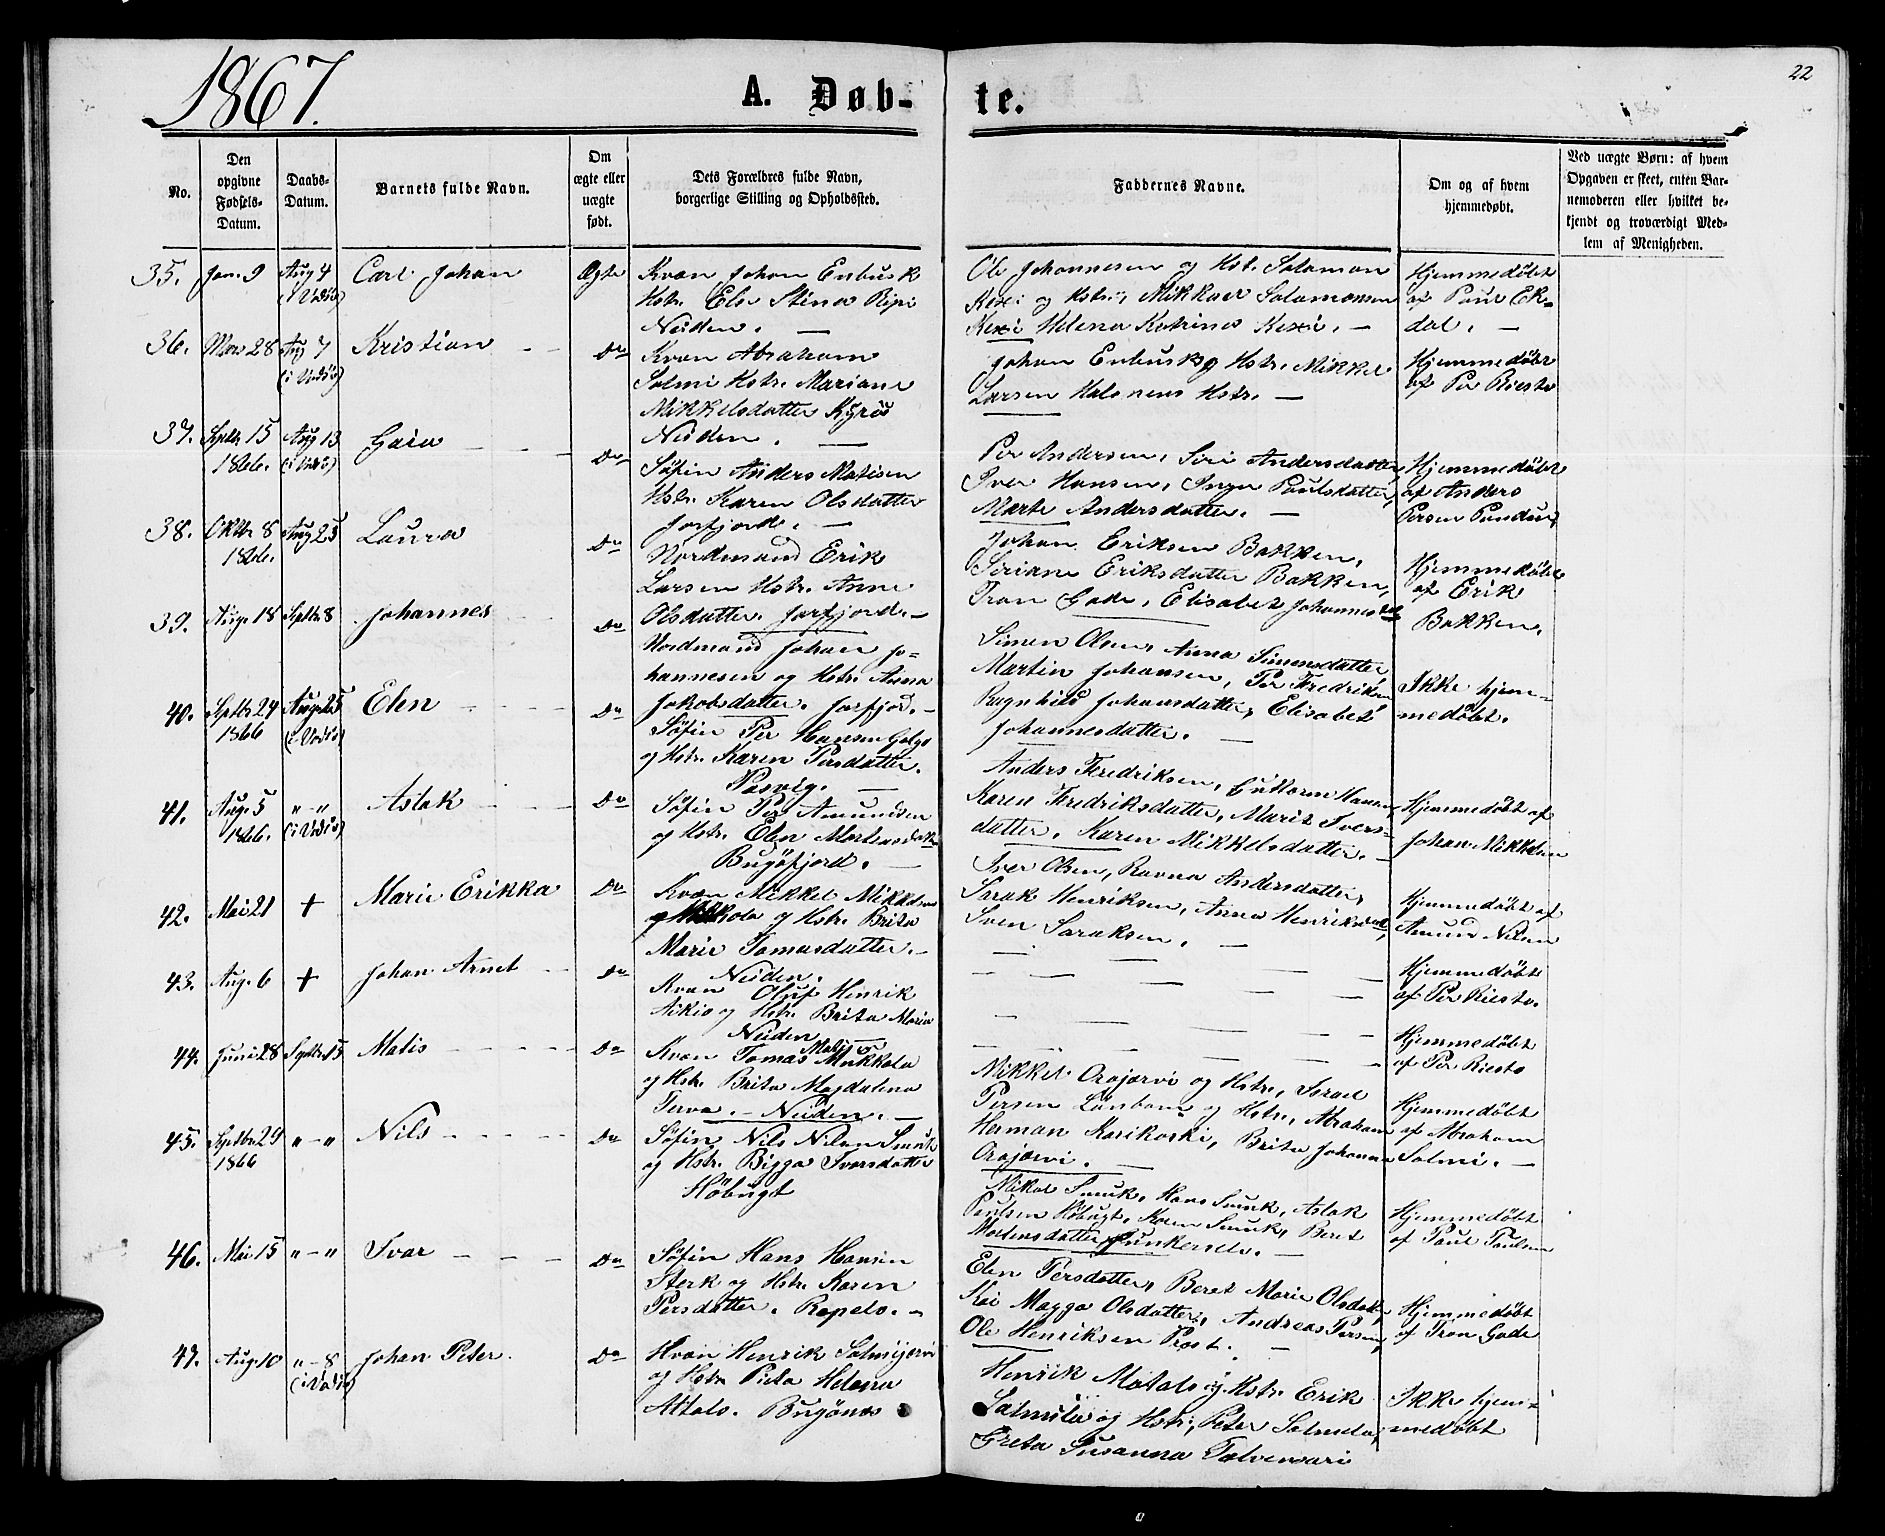 1867.
A. Døb-
te.
22
No.
Den opgivne Fødsels-Datum.
Daabs-Datum.
Barnets fulde Navn.
Om ægte eller uægte født.
Dets Forældres fulde Navn, borgerlige Stilling og Opholdssted.
Faddernes Navne.
Om og af hvem hjemmedøbt.
Ved uægte Børn: af hvem Opgaven er skeet, enten Barnemoderen eller hvilket bekjendt og troværdigt Medlem af Menigheden.
35. Jan. 9 Aug 4 Carl Johan Ægte Kvæn Johan Enbusk
(i Vadsø) Hstr. Els Stina Ripi
Neiden. —
Ole Johannesen og Hstr. Salomon
Kexi og Hstr., Mikkael Salamonsen
Kexi Helena Katrina Kexi. —
Hjemmedøbt
af Paul Ek-
dal. —
36. Mars 28 Aug 7 Kristian Do Kvæn Abraham
(i Vadsø) Salmi Hstr. Mariane
Mikkelsdatter Kyrö
Neiden. —
Johan Enbusk og Hstr. Mikkel
Larsen Halonens Hstr. —
Hjemmedøbt
af Per Riesto
37. Septbr 15 Aug 13 Do
1866. (i Vadsø)
Søfin Anders Matisen
Hstr. Karen Olsdatter
Jarfjord. —
Per Andersen, Siri Andersdatter,
Iver Hansen, Inga Paulsdatter,
Marte Andersdatter. —
Hjemmedøbt
af Anders
Persen
38. Oktbr 8 Aug 25 Laura Do
1866.
Nordmand Erik
Larsen Hstr. Anne
Olsdatter. Jarfjord. —
Johan Eriksen Bakken,
Siriane Eriksdatter Bakken,
Tron Gade, Elisabet Johannesdat
Hjemmedøbt
af Erik
Bakken.
39. Aug. 18 Septbr 8 Johannes Do
Nordmand Johan Jo-
hannesen og Hstr. Anna
Jakobsdatter. Jarfjord. —
Simen Olsen, Anna Simensdatter
Martin Johansen, Per Fredriksen
Ragnhild Johansdatter, Elisabet
Johannesdatter. —
Ikke hjem-
medøbt.
40. Septbr 24 Aug 25 Elen Do
1866 (i Vadsø)
Søfin Per Hansen
og Hstr. Karen Persdatter.
Pasvig. —
Anders Fredriksen, Hansen,
Karen Fredriksdatter, Marit Ivers-
datter. Karen Mikkelsdatter. —
Hjemmedøbt af
Johan Mikkelsen
41. Aug. 5 " — " Aslak Do
1866. (i Vadsø)
Søfin Per Amundsen
og Hstr. Elen Mortensdatter
Bugøfjord. —
Iver Olsen, Ravna Andersdatter,
Sarak Henriksen, Anna Henriksdat,
Sven Saraksen. —
Hjemmedøbt af
Amund Nilsen
42. Mai 21 + Marie Erikka Do
Kvæn Mikkel Mikkelsen
og Hstr. Brita
Marie Tomasdatter. —
Neiden.
Hjemmedøbt
af Per Riesto.
43. Aug. 6 + Johan Arnet Do
Kvæn Oluf Henrik
Aikio og Hstr. Brita Maria
Neiden
Hjemmedøbt
af Per Riesto
44. Juni 28 Septbr 15 Matis Do
Kvæn Tomas Matis Mukkala
og Hstr. Brita Magdalena
Terva. — Neiden. —
Mikkel Orajærvi og Hstr., Israel
Persen og Hstr., Abraham
Herman Karikoski, Brita Johanna
Orajærvi. —
Hjemmedøbt
af Abraham
Salmi. —
45. Septbr 29 " — " Nils Do
1866
Søfin Nils Nilsen Smuk
og Hstr. Bigga Iversdatter
Høbugt
Nikol Smuk, Hans Smuk, Aslak
Paulsen Høbugt, Karen Smuk, Beret
Mortensdatter Munkenes. —
Hjemmedøbt
af Paul Paulsen
46. Mai 15 " — " Ivar Do
Søfin Hans Hansen
Sterk og Hstr. Karen
Persdatter. —
Elen Persdatter, Beret Marie Olsdatt,
Kai Magga Olsdatter, Andreas Persen,
Ole Henriksen Prost. —
Hjemmedøbt
af Tron Gade
47. Aug. 10 " — 8 Johan Peter. Do
(i Vadsø)
Kvæn Henrik Salmijærvi
og Hstr. Pieta Helena
Attalo. Bugønes
Henrik Matalo og Hstr. Erik
Salmila og Hstr., Peter Salmela,
Greta Susanna Talvensari
Ikke hjem-
medøbt